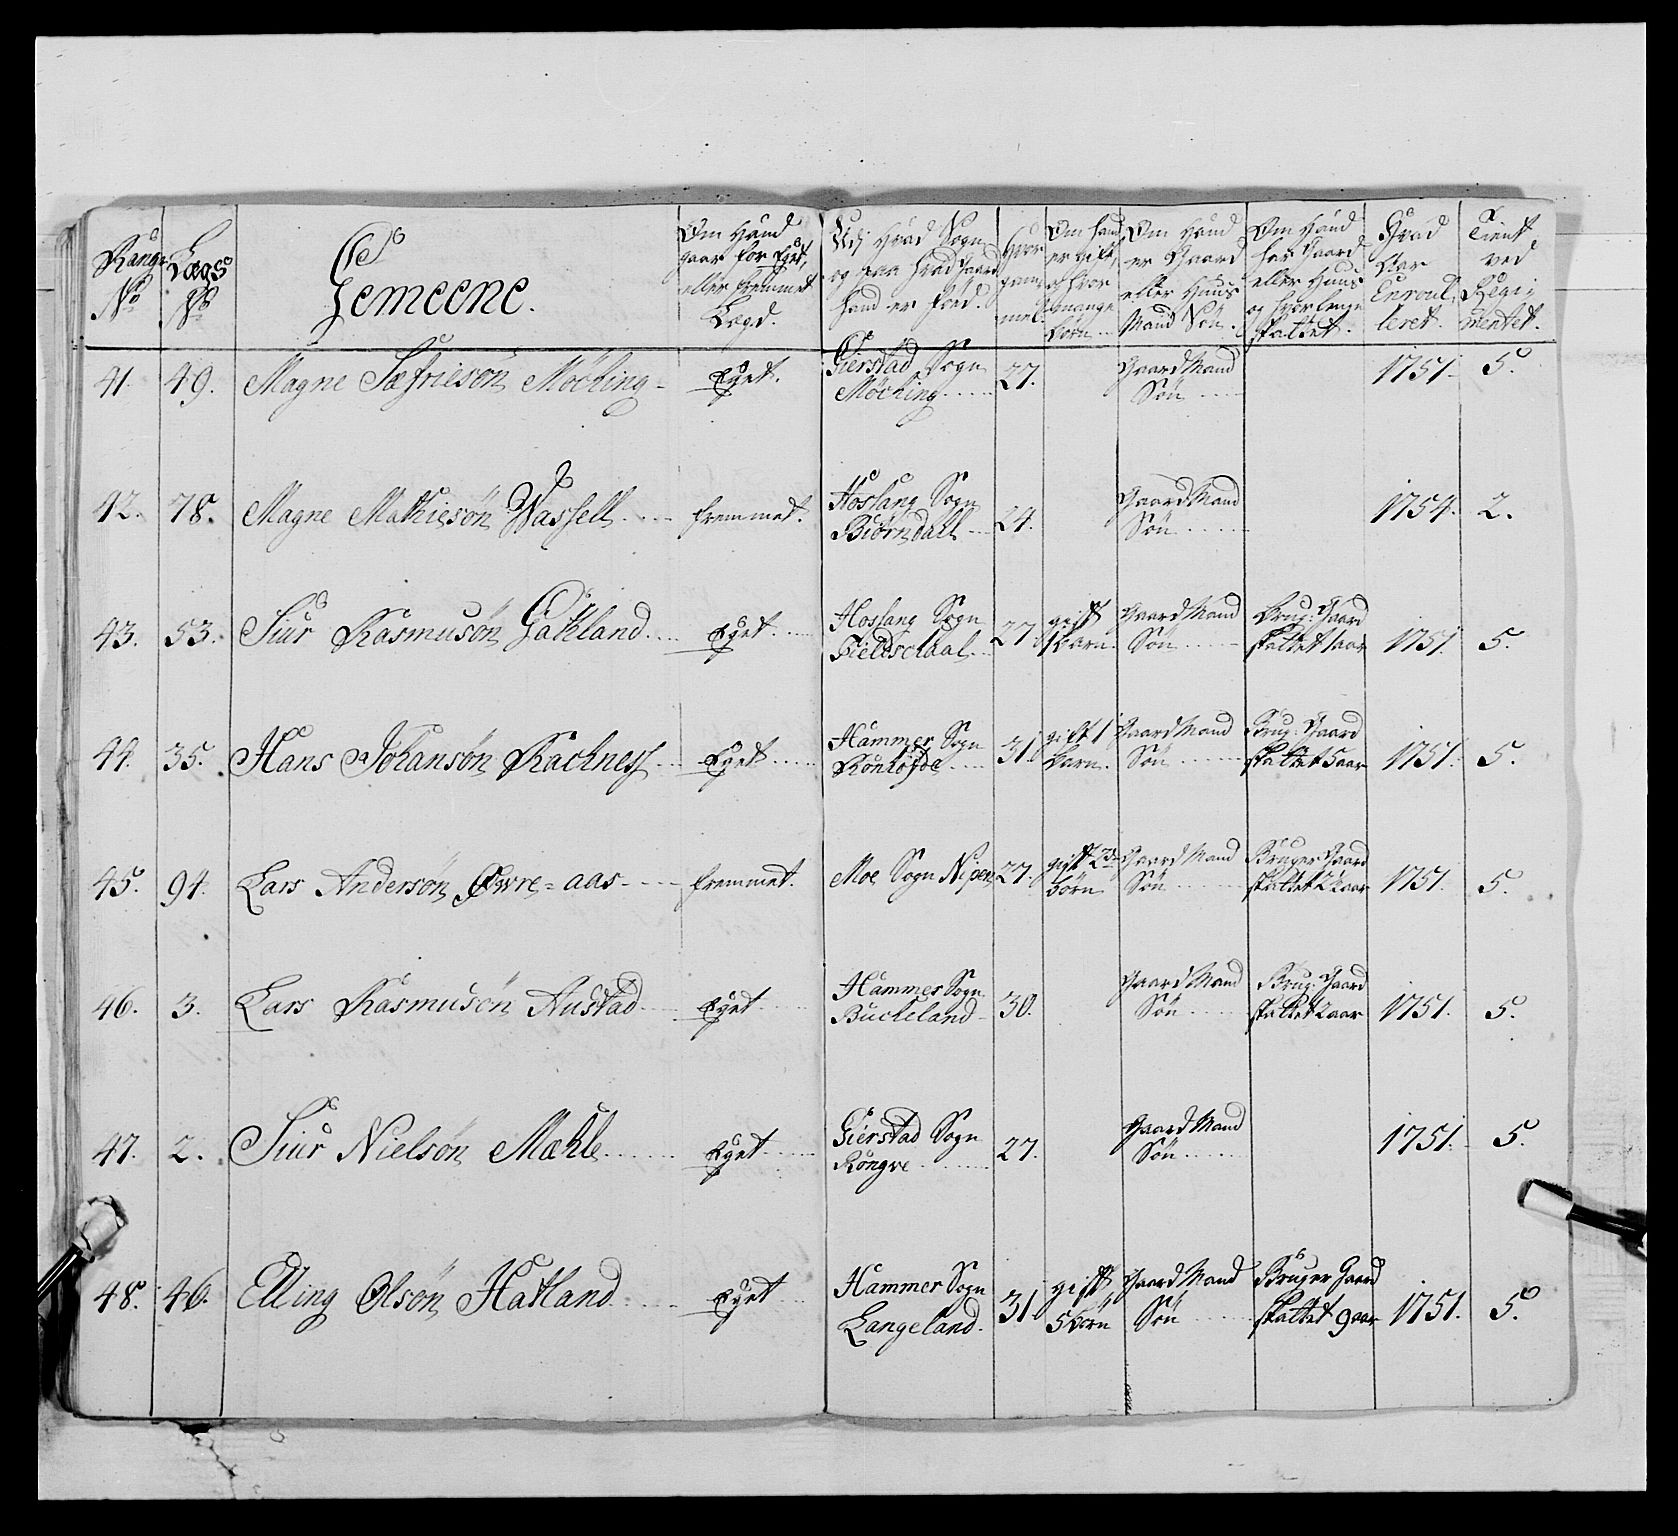 Rang N° Lægs N° Gemeene. Om Hand gaar for Eget, eller fremmet Lægd. Udj Hvad Sogn og paa Hvad Gaard hand er Föed. Hvor gam̄el. Om hand er gift, og hvor mange börn. Om Hand er Gaard eller Huus Mand Sön. Om Hand har Gaard eller Huus og hvor længe skattet. Hvad Aar Enroulleret. Tient ved Regimentet.
41. 49. Magne Sæfriesön Möching Eget. Gierstad Sogn Möching 27. Gaard Mand Sön 1751. 5.
42. 78. Magne Mathiesön Wassell fremmet. Hossang Sogn Biörndall 24. Gaard Mand Sön 1754. 2.
43. 53. Siur Rasmusön Gatland Eget Hossang Sogn 27. gift 1 barn. Gaard Mand Sön Brug: Gaard skattet 1 aar 1751. 5.
44. 35. Hans Johansön Rachness Eget Hammer Sogn 31. gift 1 barn. Gaard Mand Sön Brug: Gaard skattet 5 aar 1751. 5.
45. 94. Lars Andersön Öwre=aas fremmet. Moe Sogn Nipen 27. gift 2de börn Gaard Mand Sön Bruger Gaard skattet 2 aar 1751. 5.
46. 3. Lars Rasmusön Austad Eget Hammer Sogn Bucheland 30. Gaard Mand Sön Brug: Gaard skattet 2 aar 1751. 5.
47. 2. Siur Nielsön Mæhle Eget Gierstad Sogn Röngve 27. Gaard Mand Sön 1751. 5.
48. 46. Elling Olsön Hatland Eget Hammer Sogn Langeland. 31. gift, 5 börn Gaard Mand Sön Bruger Gaard skattet 9 aar 1751. 5.